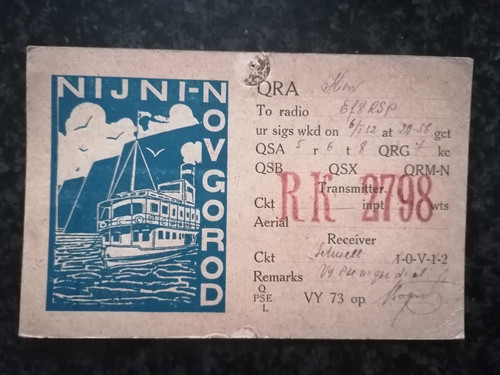 NIJNI-NOVGOROD
QRA
To radio Ef8RSP
ur sigs wkd on 6/I 32 at 20-56 gct
QSA 5 r 6 t 8 QRG 7 kc
QSB QSX QRM-N
Transmitter
RK-2798
Ckt inpt wts
Aerial
Receiver
Ckt 1-0-V-1-2
Remarks Vy
Q
PSE VY 73 op
L